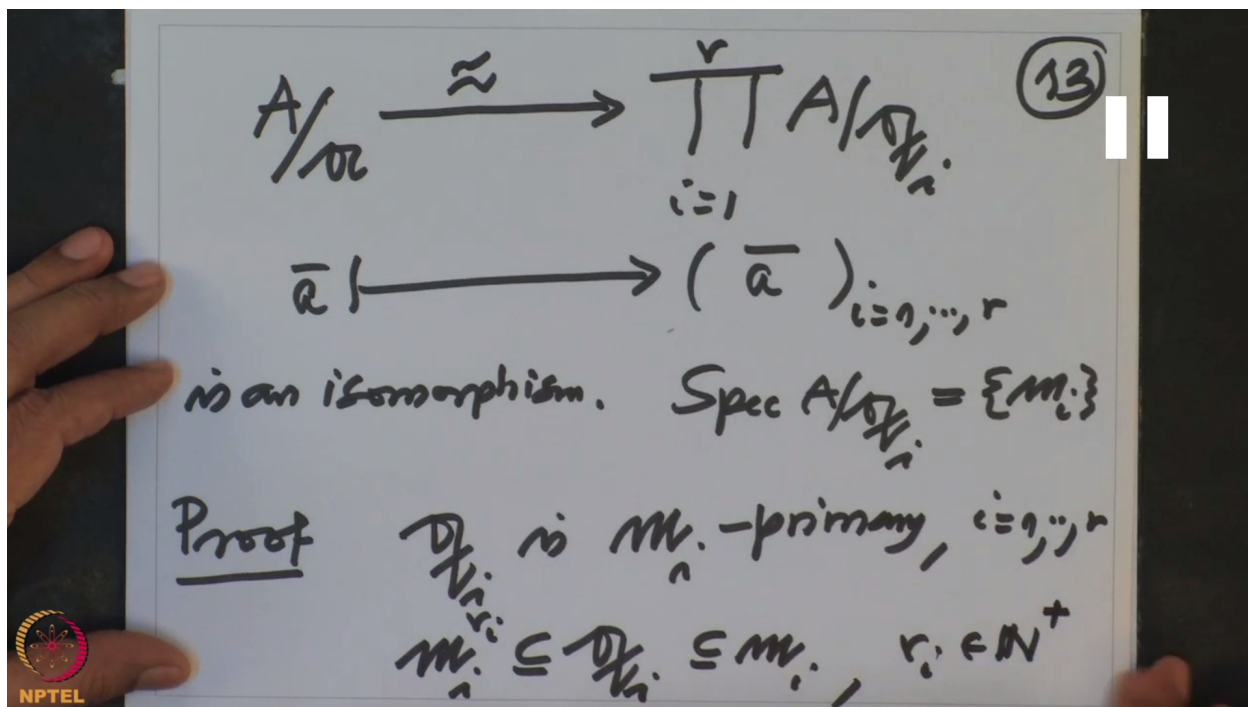 13
A/𝔞 ≈→ ∏_{i=1}^{r} A/𝔮_i
ā ↦ ( ā )_{i=1,…,r}
is an isomorphism. Spec A/𝔮_i = {𝔪_i}
Proof 𝔮_i is 𝔪_i-primary, i=1,…,r
𝔪_i^{r_i} ⊆ 𝔮_i ⊆ 𝔪_i, r_i ∈ ℕ⁺
NPTEL